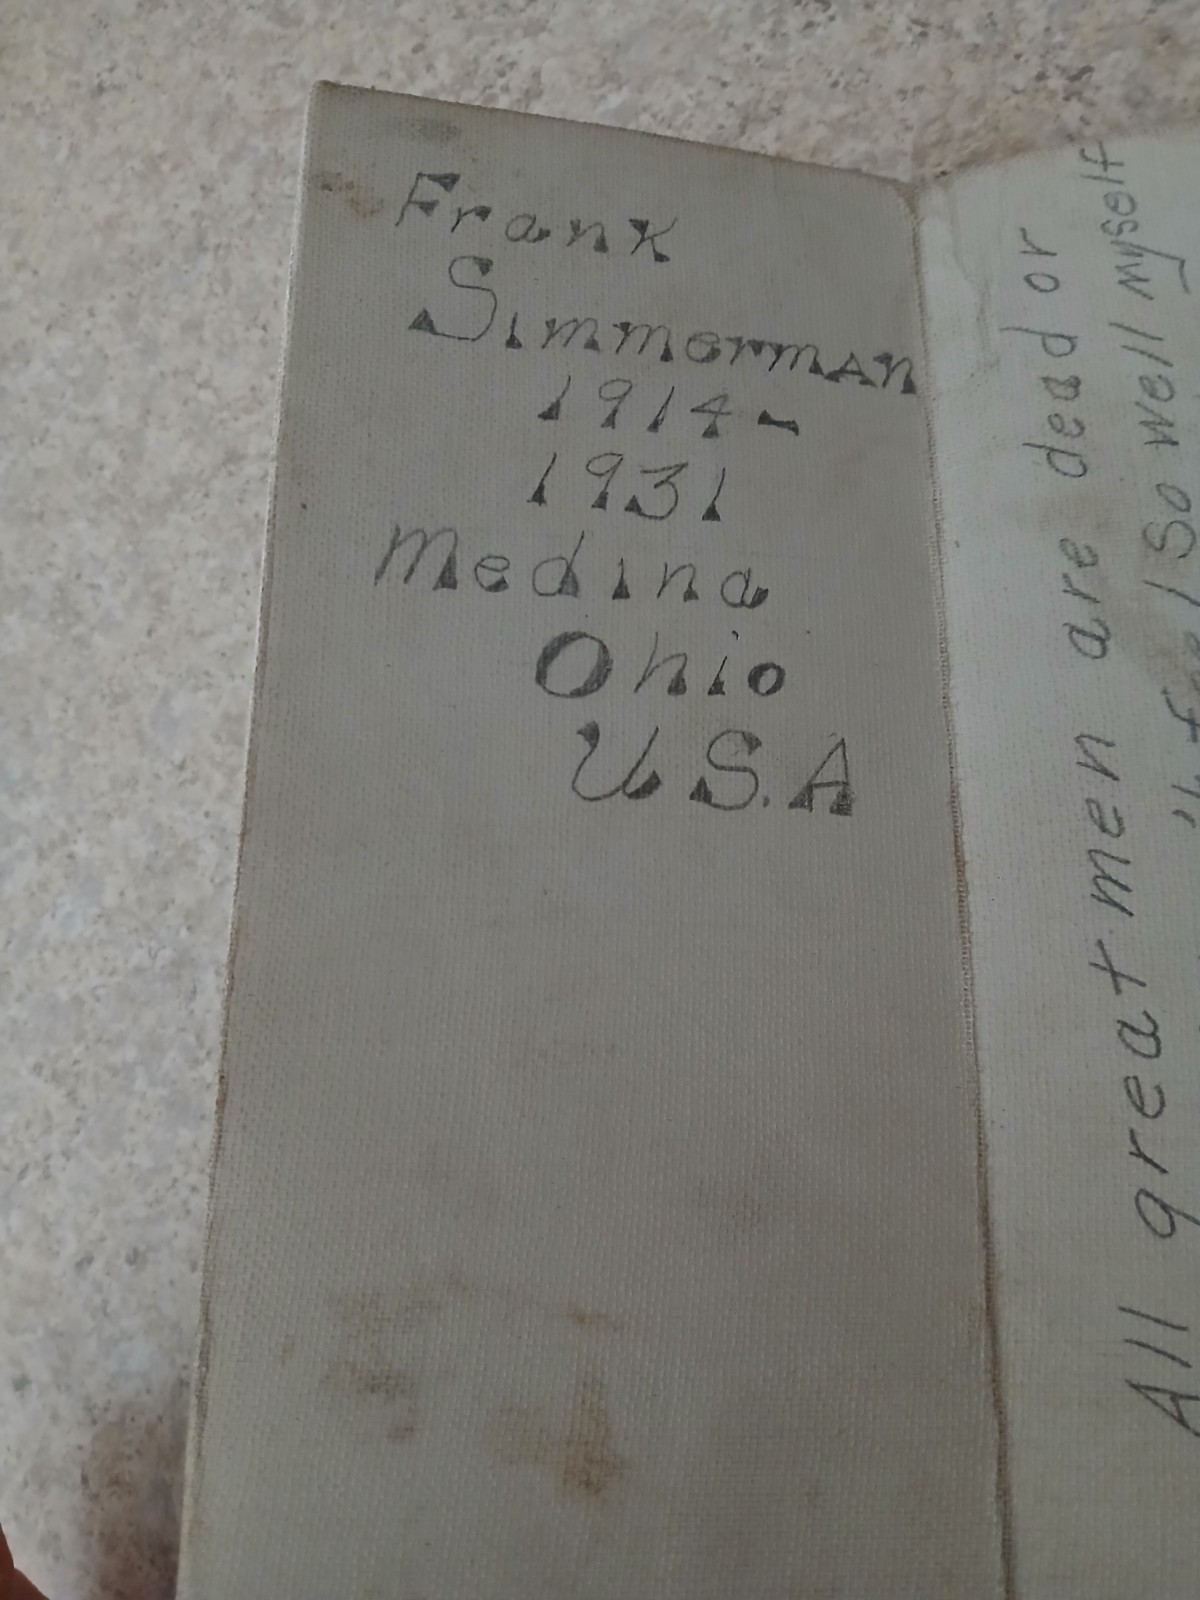 Frank
Simmerman
1914-
1931
Medina
Ohio
U S.A
All great men are dead or
feel so well myself